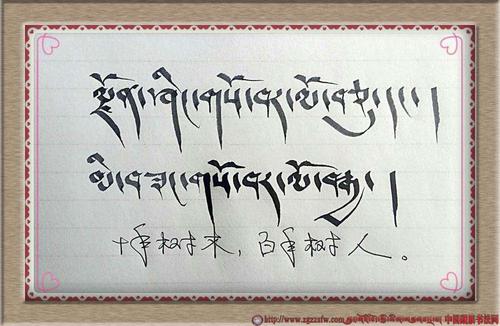 ལྗོན་ཤིང་གསོ་བར་ལོ་བཅུ། ། །
མི་བཟང་གསོ་བར་ལོ་བརྒྱ། །
十年树木，百年树人。
http://www.zgzzsfw.com 中国藏族书法网